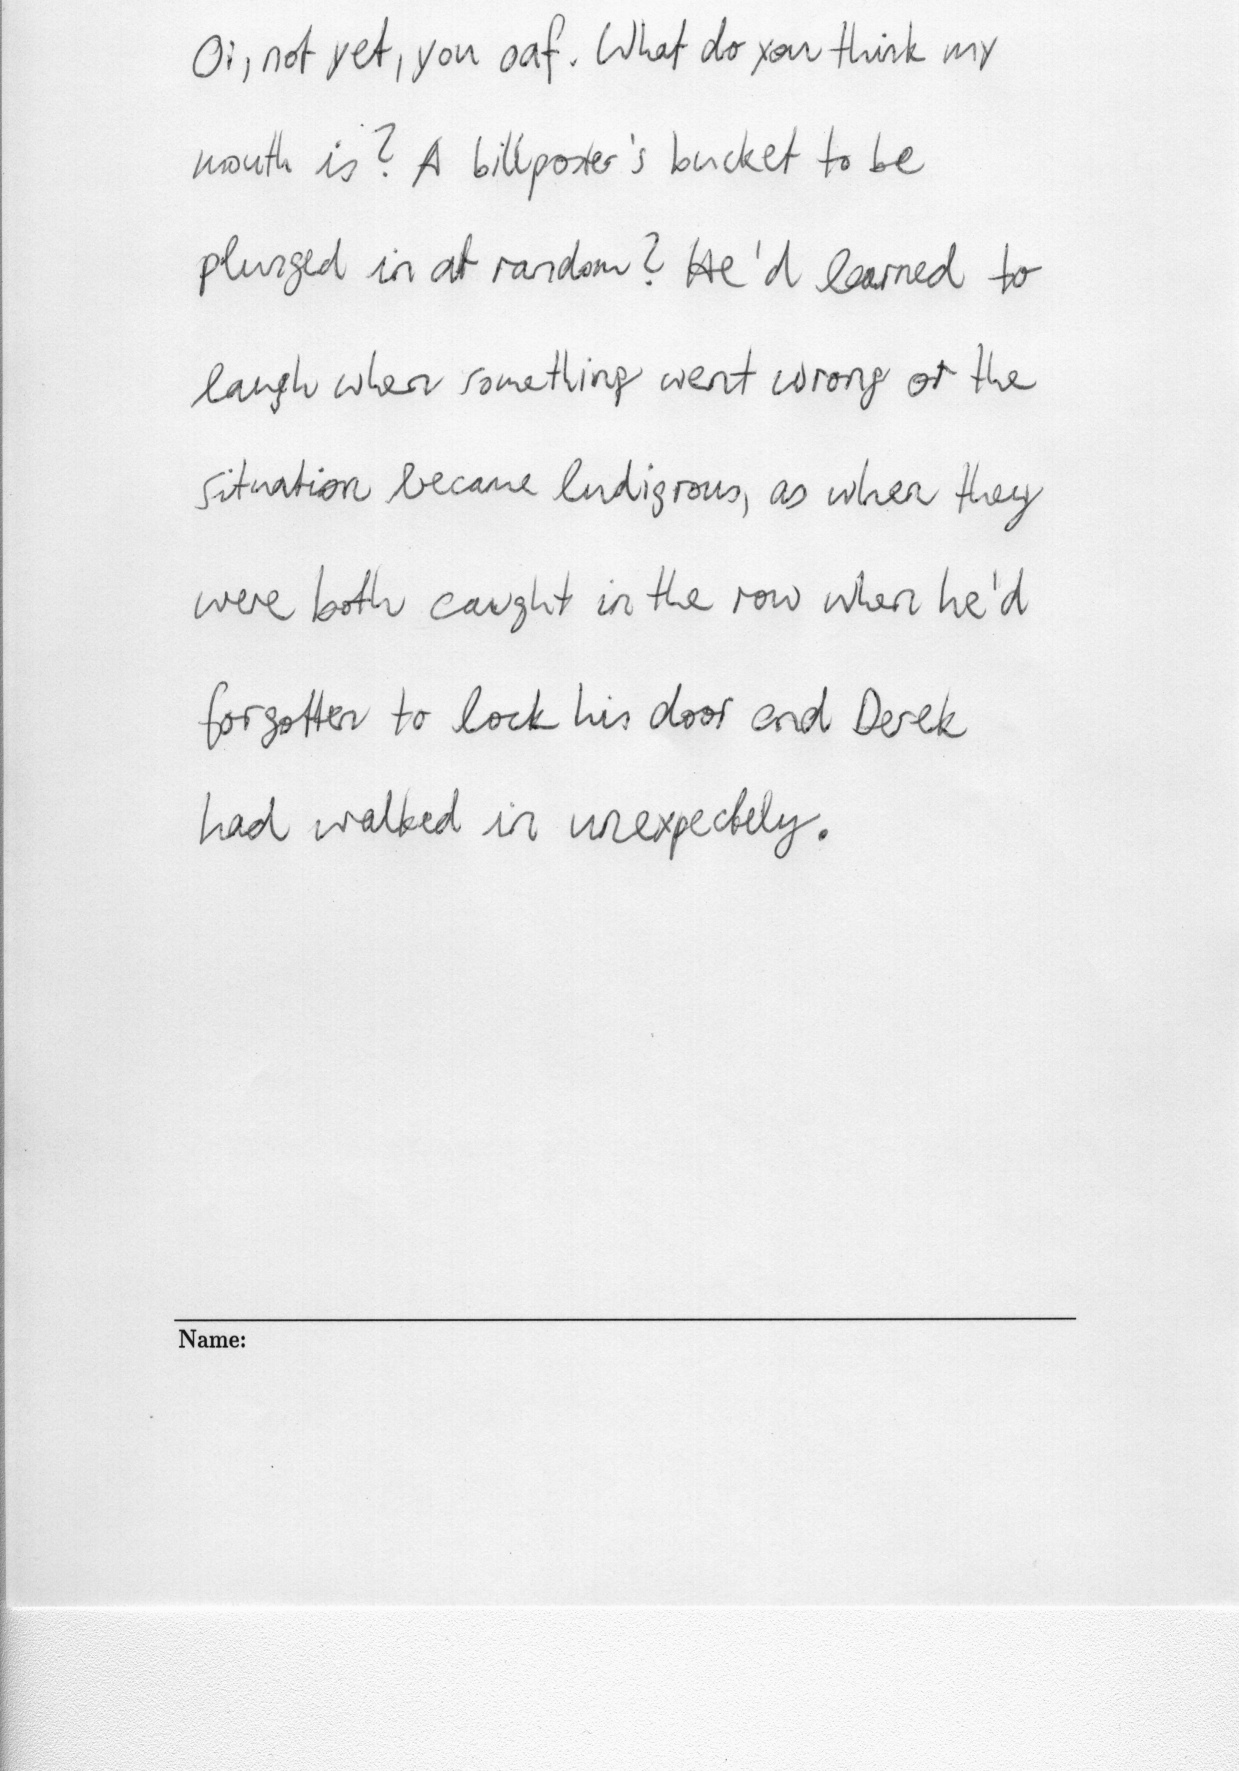 Oi, not yet, you oaf. What do you think my
mouth is? A billposter's bucket to be
plunged in at random? He'd learned to
laugh when something went wrong or the
situation became ludigrous, as when they
were both caught in the row when he'd
forgotten to lock his door and Derek
had walked in unexpectely.
Name: